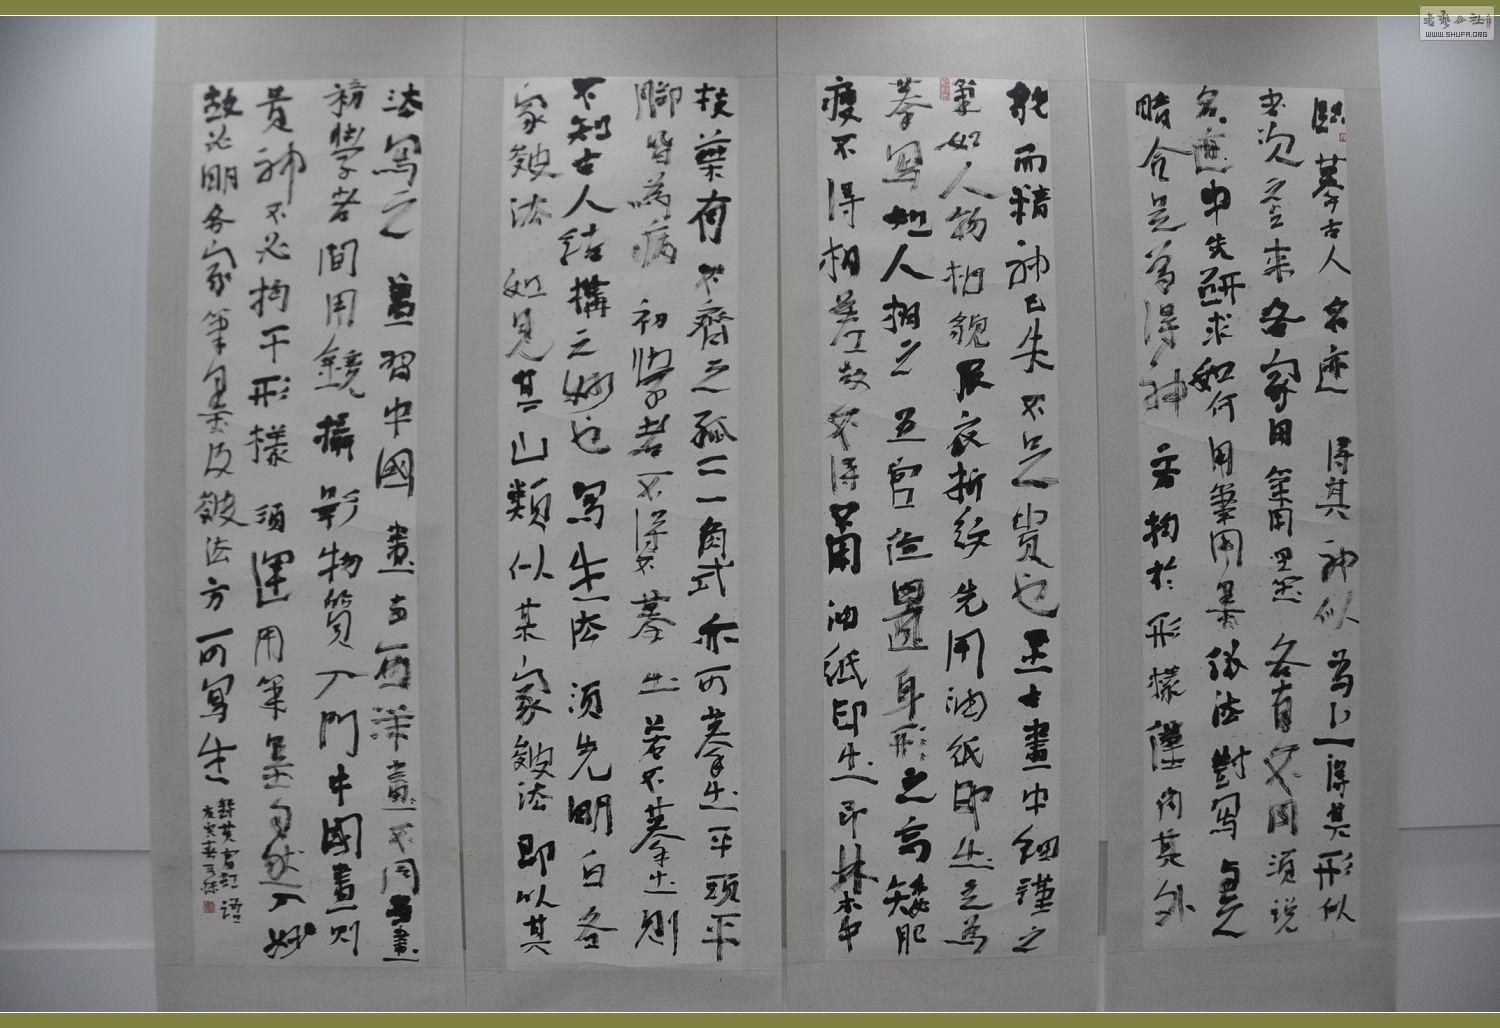 臨摹古人名迹得其神似為上得其形似
次之至来各家用筆用墨各有不同須説
名迹中先研求如何用筆用墨後法對写
暗合是為得神若拘於形樣僅肖其外
貌而精神已失不足貴也至古畫中細謹之
筆如人物相貌服衣折紋先用油紙印出之為
摹写如人相之五官位置身形之高矮肥
瘦不得相差故不得不用油紙印出即林木中
枝葉有不齊之孤一角式亦可摹出平頭平
脚皆為病初學者不得不摹出若不摹出則
不知古人結構之妙也写生法須先明白各
家皴法如見其山類似某家皴法即以其
法写之畫習中國畫與西洋畫不同西畫
初學者間用鏡攝影物質入門中國畫則
貴神不必拘于形樣須運用筆墨自然入妙
故必明各家筆墨及皴法方可写生
書艺公社
WWW.SHUFA.ORG